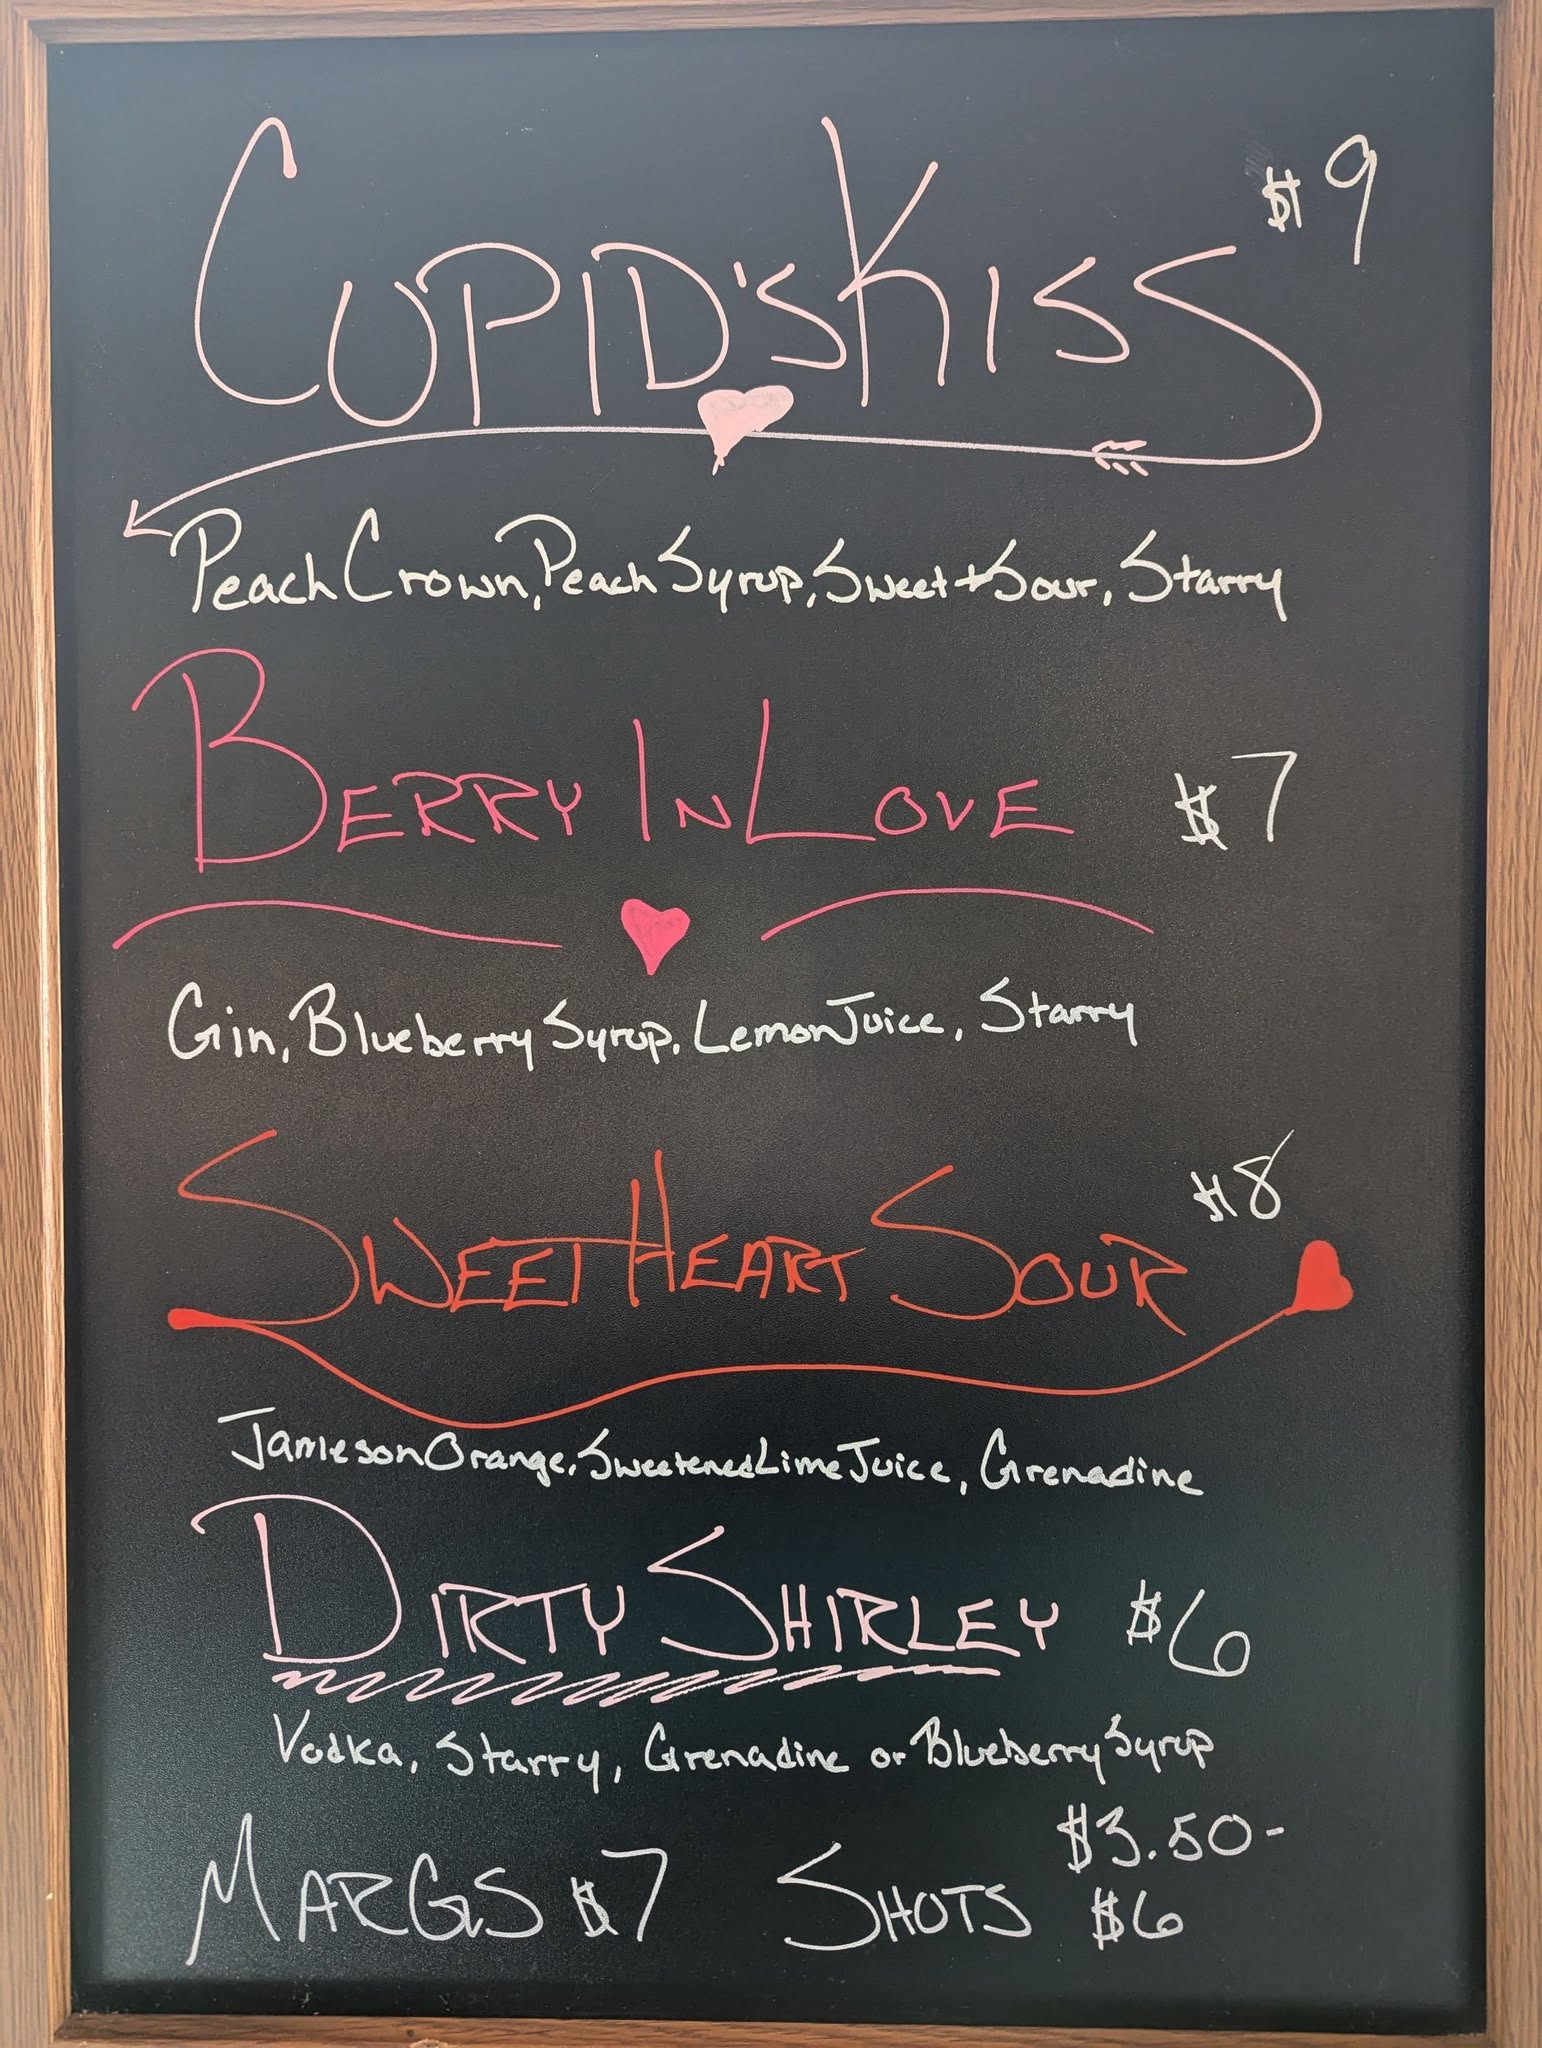 CUPID'S KISS $9
Peach Crown, Peach Syrup, Sweet + Sour, Starry
BERRY IN LOVE $7
Gin, Blueberry Syrup, Lemon Juice, Starry
SWEET HEART SOUR $8
Jamieson Orange, Sweetened Lime Juice, Grenadine
DIRTY SHIRLEY $6
Vodka, Starry, Grenadine or Blueberry Syrup
MARGS $7 SHOTS $3.50-
$6